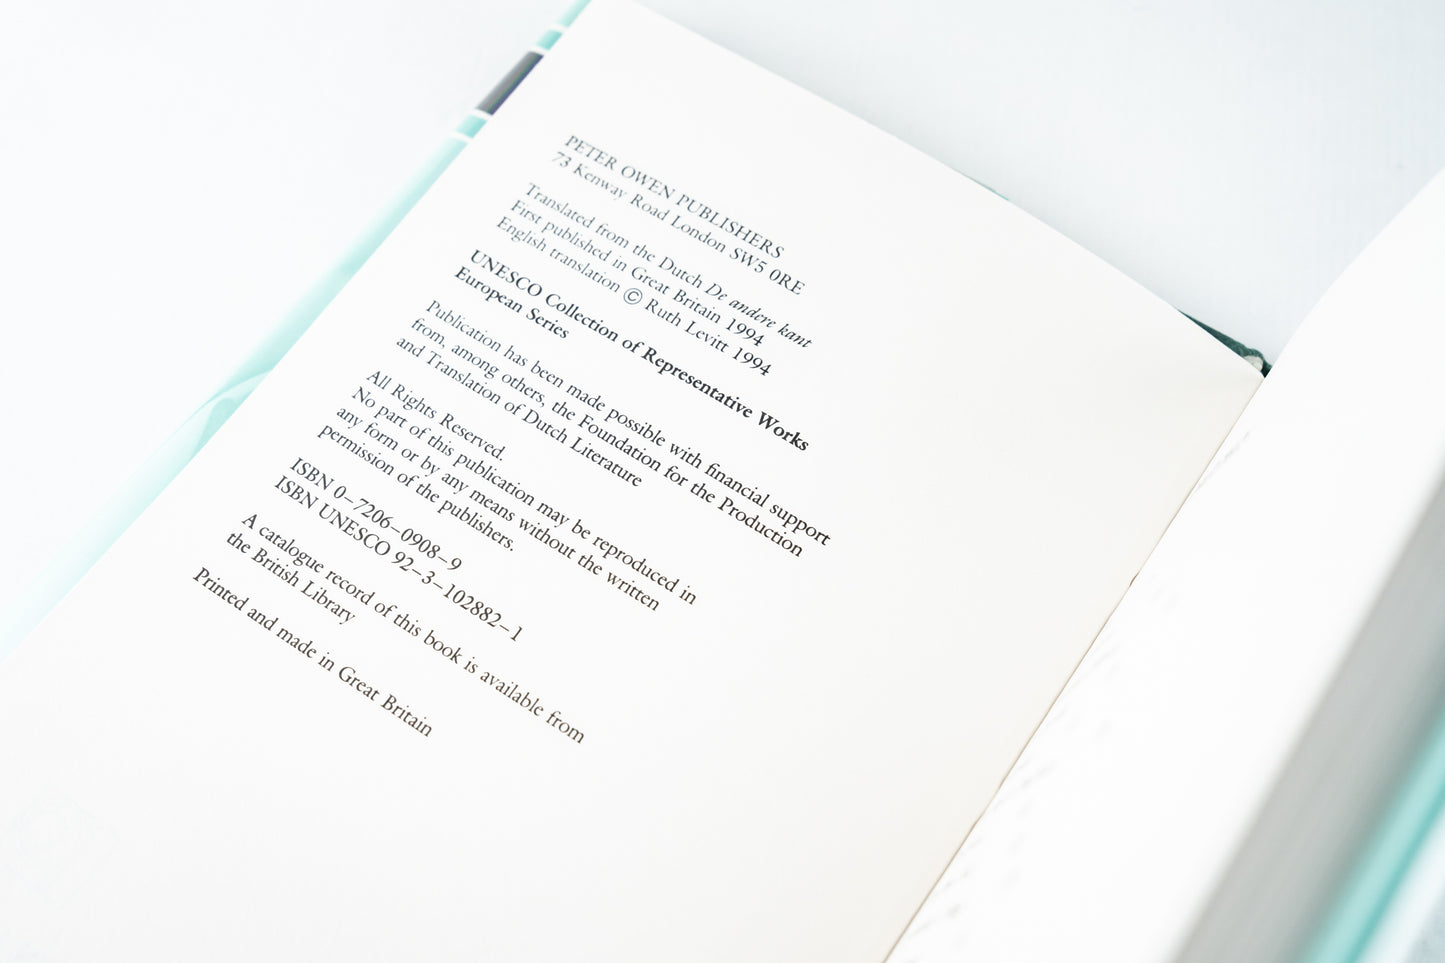 PETER OWEN PUBLISHERS
73 Kenway Road London SW5 0RE
Translated from the Dutch De andere kant
First published in Great Britain 1994
English translation © Ruth Levitt 1994
UNESCO Collection of Representative Works
European Series
Publication has been made possible with financial support
from, among others, the Foundation for the Production
and Translation of Dutch Literature
All Rights Reserved.
No part of this publication may be reproduced in
any form or by any means without the written
permission of the publishers.
ISBN 0–7206–0908–9
ISBN UNESCO 92–3–102882–1
A catalogue record of this book is available from
the British Library
Printed and made in Great Britain